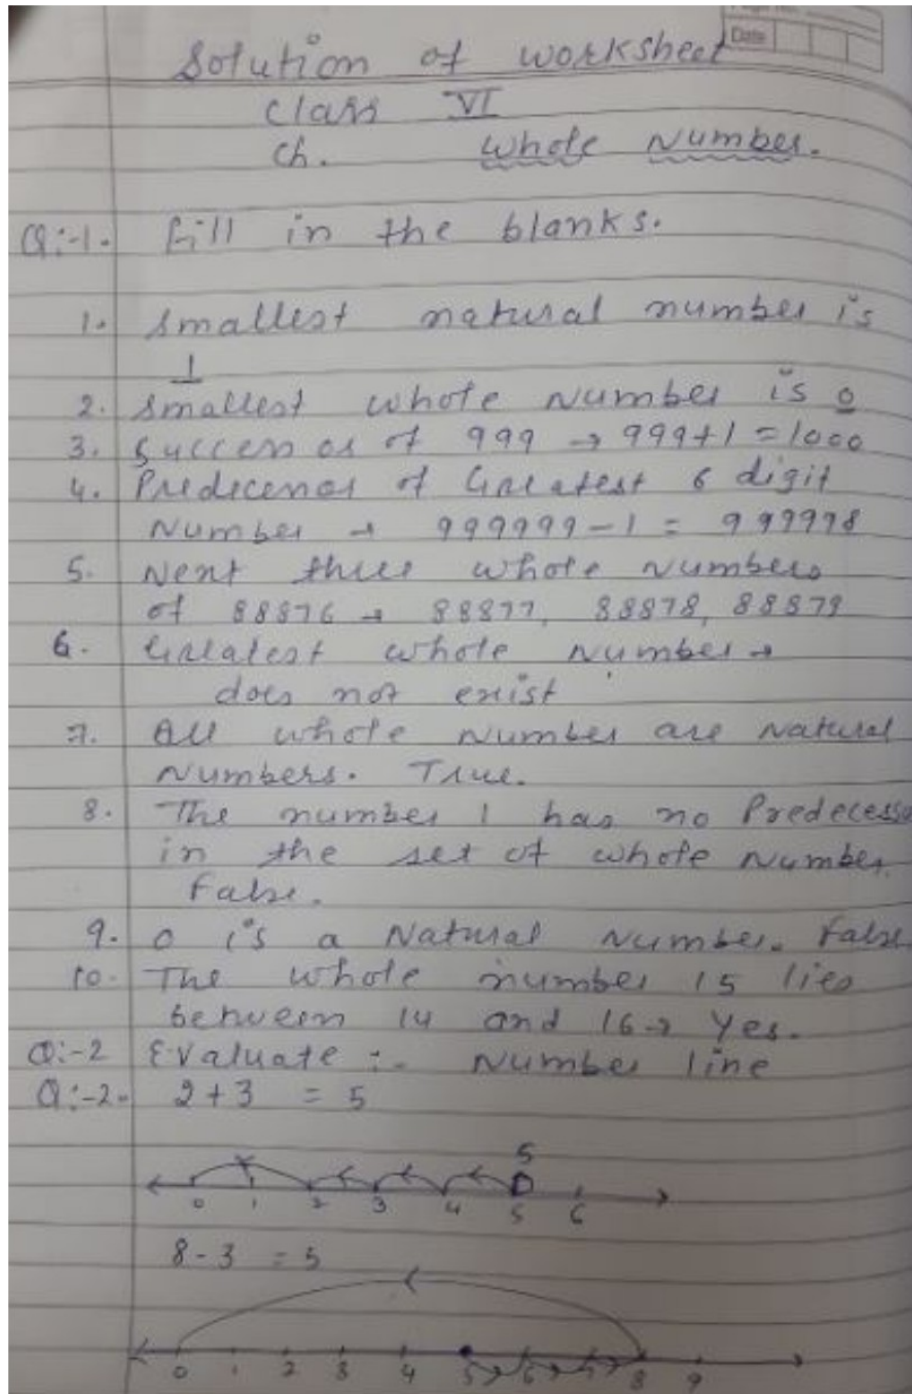 Date
Solution of worksheet
Class VI
Ch. Whole Number.
Q:-1. Fill in the blanks.
1. Smallest natural number is
1
2. Smallest whole Number is 0
3. Successor of 999 → 999+1 = 1000
4. Predecessor of Greatest 6 digit
Number → 999999-1 = 999998
5. Next three whole numbers
of 88876 → 88877, 88878, 88879
6. Greatest whole number →
does not exist
7. All whole number are Natural
Numbers. True.
8. The number 1 has no Predecesso
in the set of whole Number.
False.
9. 0 is a Natural Number. False
10. The whole number 15 lies
between 14 and 16 → Yes.
Q:-2 Evaluate :- Number line
Q:-2- 2+3 = 5
5
0 1 2 3 4 5 6
8-3 = 5
0 1 2 3 4 5 6 7 8 9